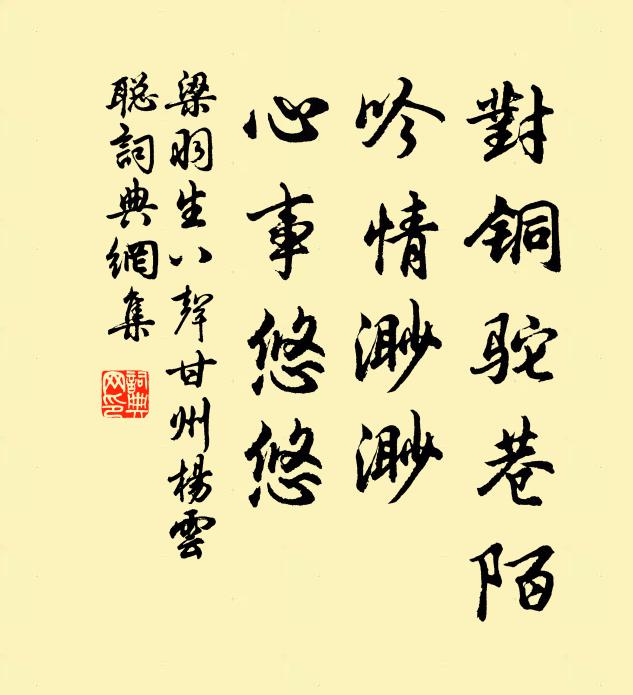 對铜驼巷陌
吟情渺渺
心事悠悠
梁羽生八聲甘州楊雲
聪詞典網集
詞典網印